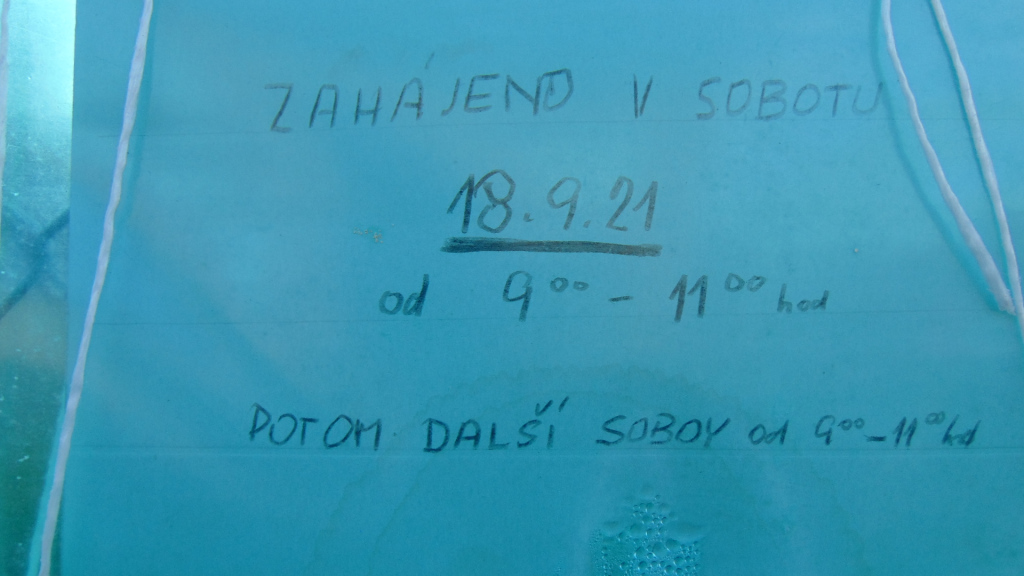 ZAHÁJENO V SOBOTU
18.9.21
od 9⁰⁰ - 11⁰⁰ hod
POTOM DALŠÍ SOBOY od 9⁰⁰-11⁰⁰ hd